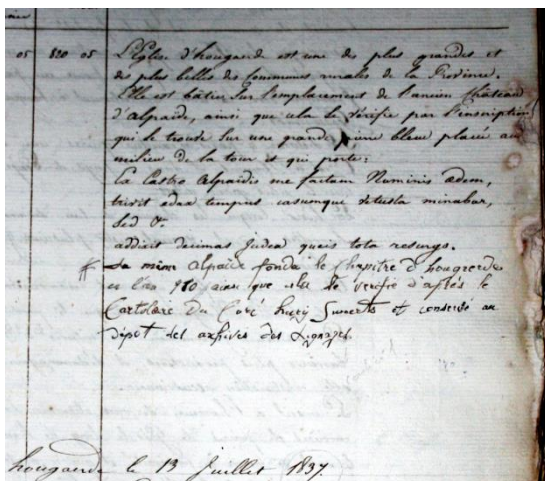 05 820 05 L'Eglise d'hougarde est une des plus grandes et
des plus belle des Communes rurales de la Province.
Elle est bâtie sur l'emplacement de l'ancien Château
d'Alpaïde, ainsi que cela se vérifie par l'inscription
qui se trouve sur une grande pierre bleue placée au
milieu de la tour et qui porte:
Ex Castro Alpaidis me factam Numinis ædem,
trivit edax tempus casumque vetusta minabar,
sed &.
addixit decimas Judex queis tota resurgo.
La même Alpaïde fonda le Chapitre d'hougaerde
en l'an 980 ainsi que cela se vérifie d'après le
Cartulaire du Curé et conservé au
dépôt des archives des
hougaerde le 13 Juillet 1837.